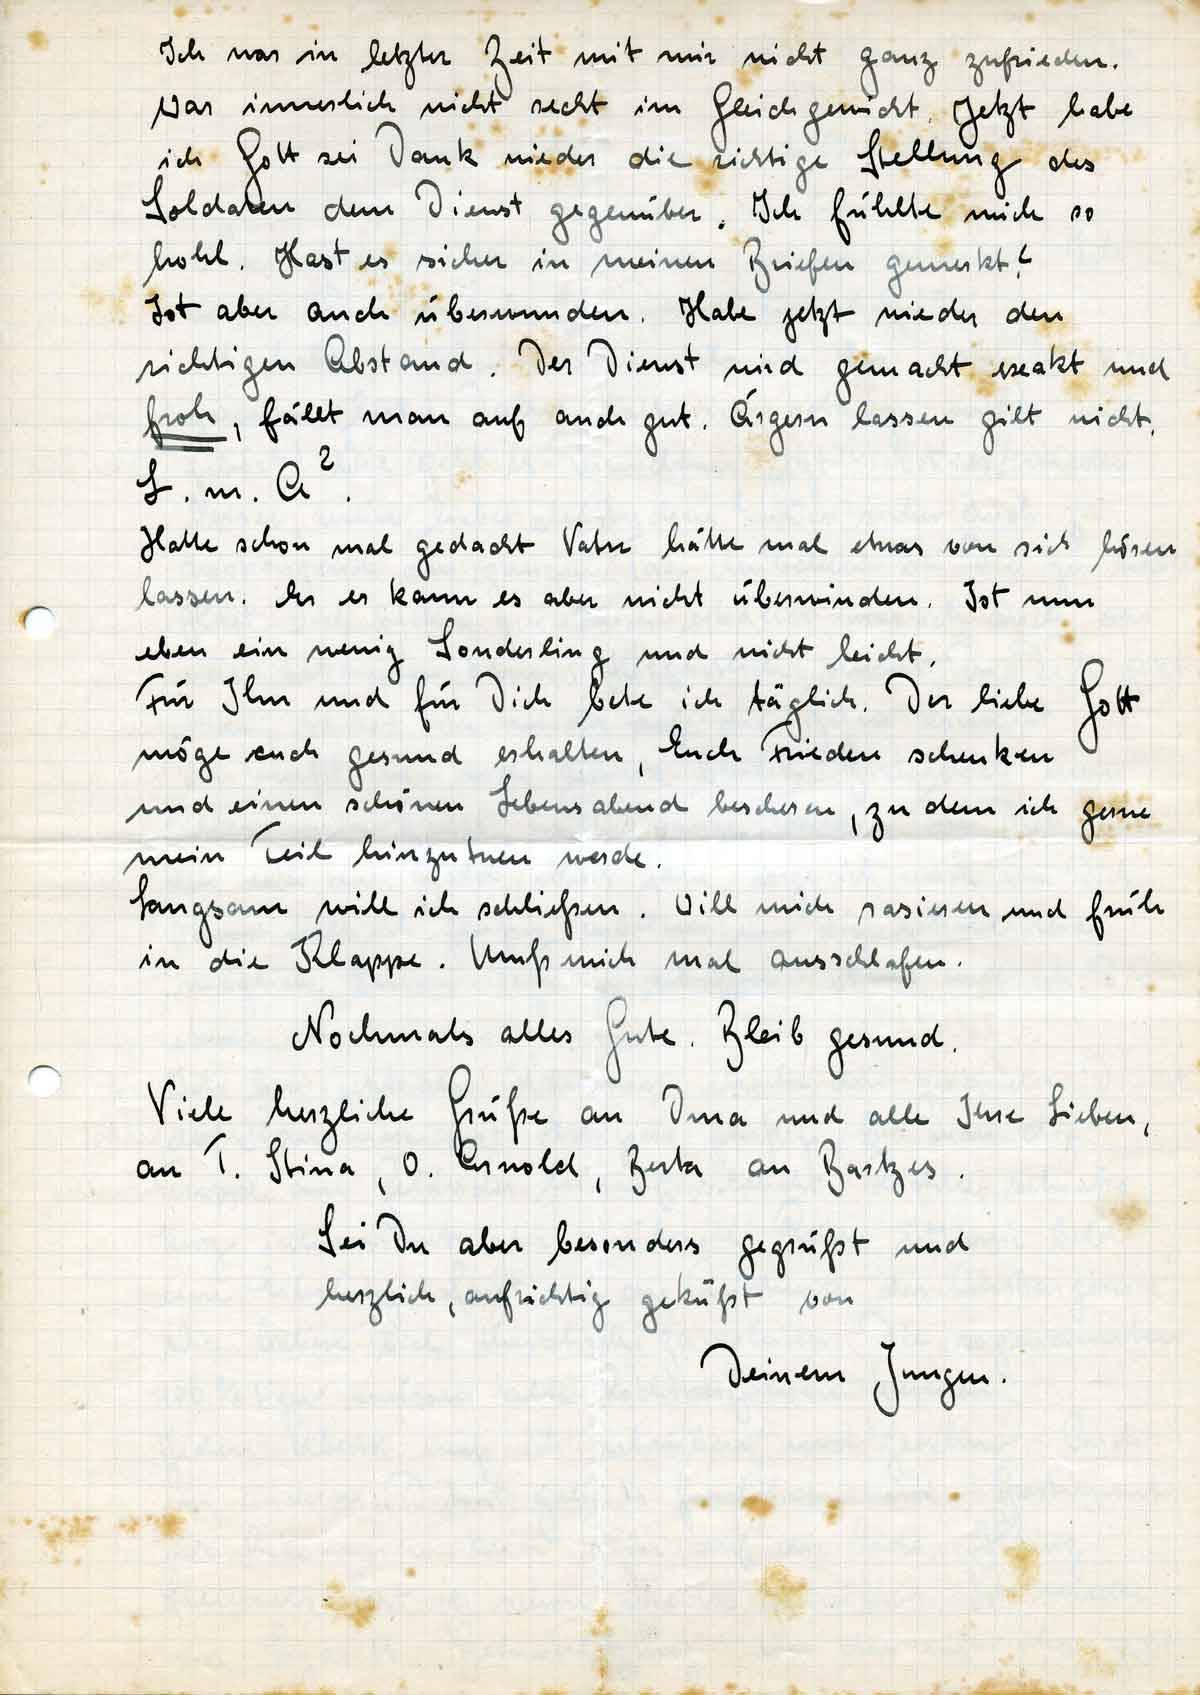 Ich war in letzter Zeit mit mir nicht ganz zufrieden.
War innerlich nicht recht im Gleichgewicht. Jetzt habe
ich Gott sei Dank wieder die richtige Stellung des
Soldaten dem Dienst gegenüber. Ich fühlte mich so
hohl. Hast es sicher in meinen Briefen gemerkt?
Ist aber auch überwunden. Habe jetzt wieder den
richtigen Abstand. Der Dienst wird gemacht exakt und
froh, fällt man auf auch gut. Ärgern lassen gilt nicht.
L. m. A².
Hatte schon mal gedacht Vater hätte mal etwas von sich hören
lassen. Er es kann es aber nicht überwinden. Ist nun
eben ein wenig Sonderling und nicht leicht.
Für Ihn und für Dich bete ich täglich. Der liebe Gott
möge euch gesund erhalten, Euch Frieden schenken
und einen schönen Lebensabend bescheren, zu dem ich gerne
mein Teil hinzutuen werde.
Langsam will ich schließen. Will mich rasieren und früh
in die Klappe. Muß mich mal ausschlafen.
Nochmals alles Gute. Bleib gesund.
Viele herzliche Grüße an Oma und alle Ihre Lieben,
an T. Stina, O. Arnold, Berta an Bartzes.
Sei Du aber besonders gegrüßt und
herzlich, aufrichtig geküßt von
Deinem Jungen.